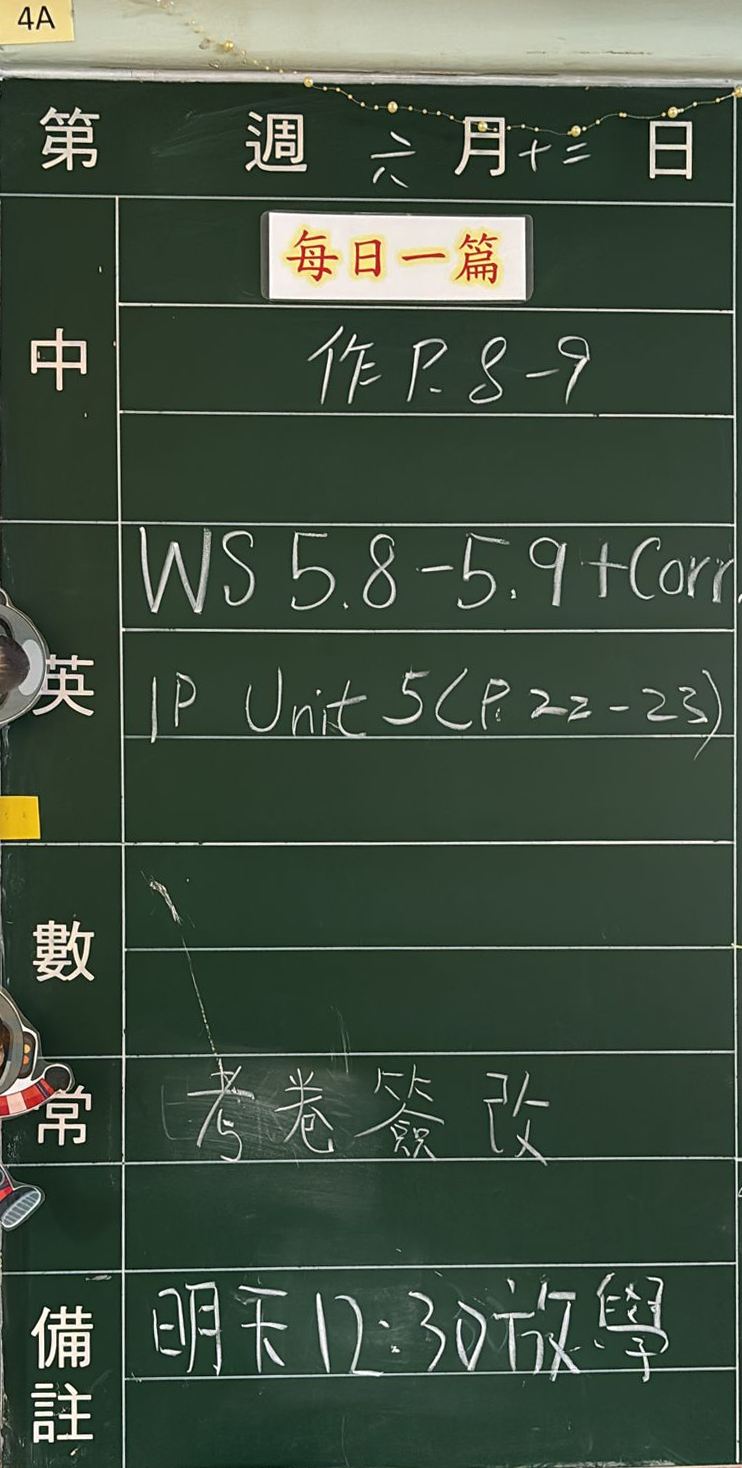 4A
第 週 六 月 十二 日
中
每日一篇
作 P. 8-9
英
WS 5.8-5.9+Corr.
IP Unit 5(P. 22-23)
數
常
考卷簽改
備註
明天12:30放學